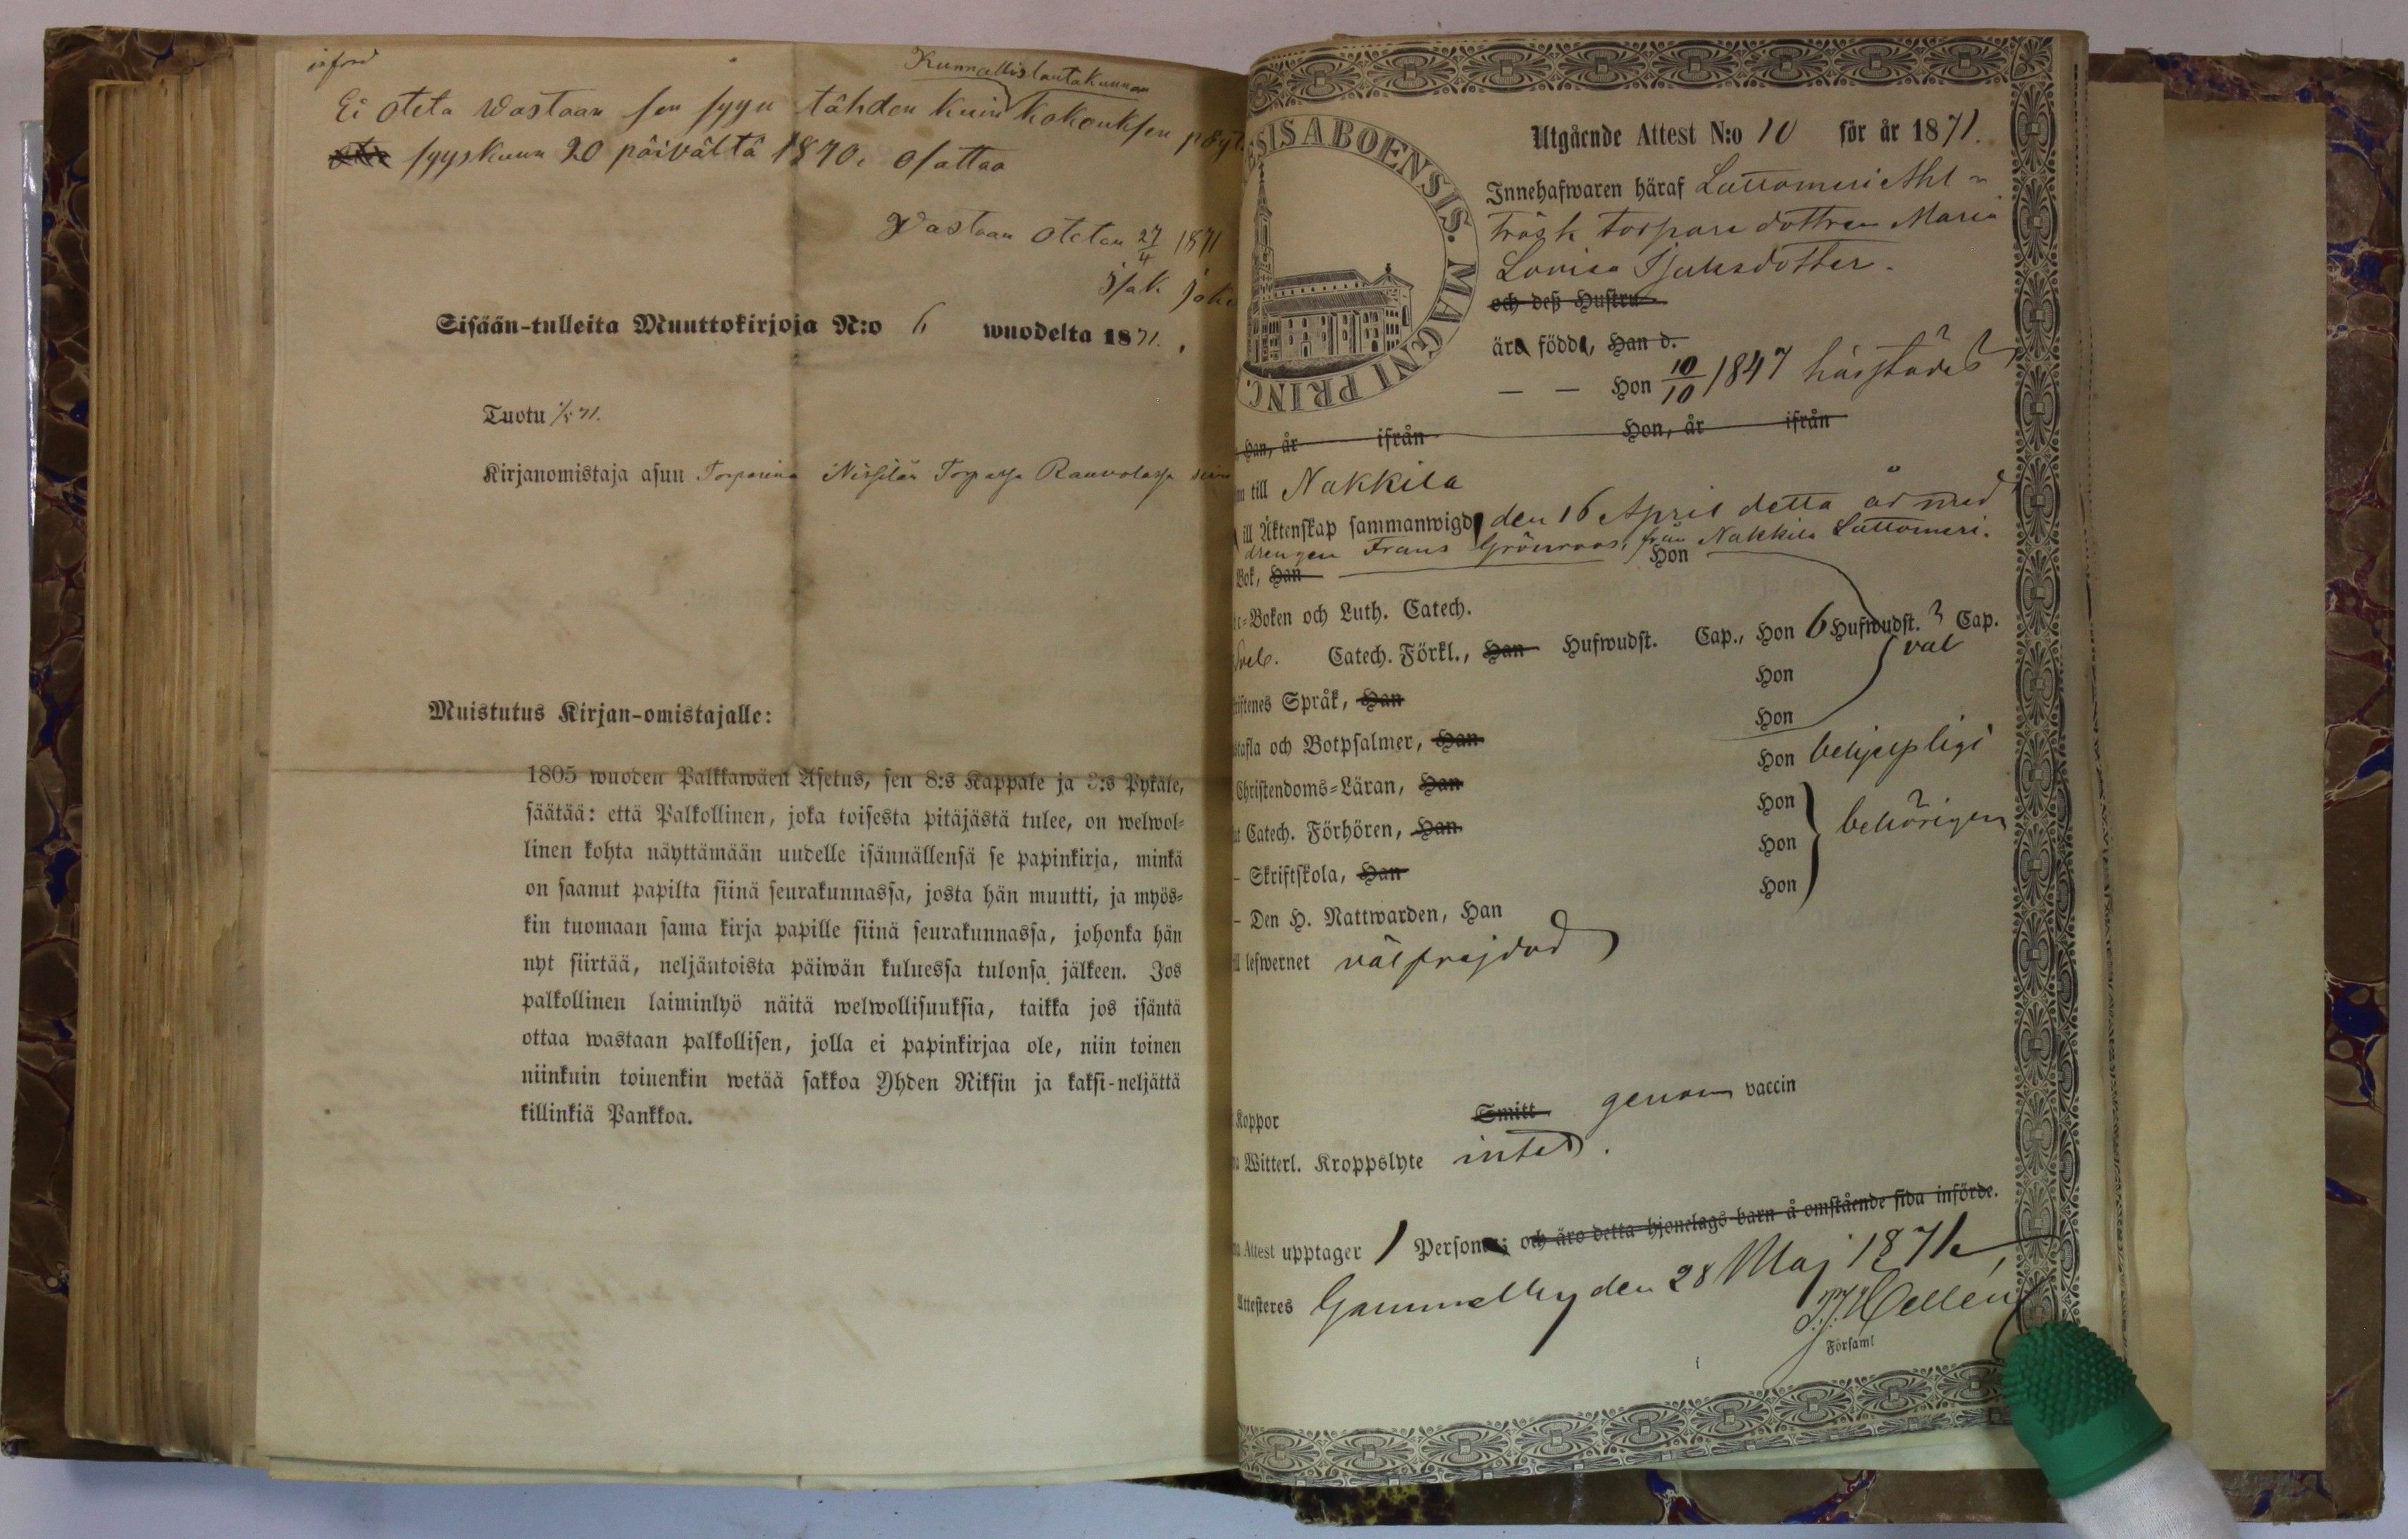 införd
Kunnallislautakunnan
Ei oteta wastaan sen syyn tähden kuin kokouksen pöyt
syyskuun 20 päivältä 1870. osattaa
Wastaan otetan 27/4 1871
Isak
Sisään-tulleita Muuttokirjoja N:o 6 wuodelta 1871.
Tuotu 1/5 71.
Kirjanomistaja asuu Torparina Torpassa Rauvolassa
Muistutus Kirjan-omistajalle:
1805 wuoden Palkkawäen Asetus, sen 8:s Kappale ja 3:s Pykäle,
säätää: että Palkollinen, joka toisesta pitäjästä tulee, on welwol-
linen kohta näyttämään uudelle isännällensä se papinkirja, minkä
on saanut papilta siinä seurakunnassa, josta hän muutti, ja myös-
kin tuomaan sama kirja papille siinä seurakunnassa, johonka hän
nyt siirtää, neljäntoista päiwän kuluessa tulonsa jälkeen. Jos
palkollinen laiminlyö näitä welwollisuuksia, taikka jos isäntä
ottaa wastaan palkollisen, jolla ei papinkirjaa ole, niin toinen
niinkuin toinenkin wetää sakkoa Yhden Riksin ja kaksi-neljättä
killinkiä Pankkoa.
ESIS ABOENSIS. MAGNI PRINC.
Utgående Attest N:o 10 för år 1871.
Innehafwaren häraf Lattomeri Ahl-
träsk torpare dottren Maria
Lovisa Isaksdotter.
och deß Hustru
äro födde, Han d.
— — Hon 10/10 1847 härstädes
Han, år ifrån Hon, år ifrån
till Nakkila
till Äktenskap sammanwigd den 16 April detta år med
drengen Frans Grönroos, från Nakkila Lattomeri.
Bok, Han Hon
-Boken och Luth. Catech.
Catech. Förkl., Han Hufwudst. Cap., Hon 6 Hufwudst. Cap.
väl
Språk, Han Hon
och Botpsalmer, Han Hon
Christendoms-Läran, Han Hon behjelpligt
Catech. Förhören, Han Hon
behörigen
- Skriftskola, Han Hon
- Den H. Nattwarden, Han Hon
lefwernet välfrejdad
Koppor Smitt genom vaccin
Witterl. Kroppslyte intet.
Attest upptager 1 Person och äro detta hjonelags barn å omstående sida införde.
Attesteres Gammelby den 28 Maj 1871
Hellén
Församl
i